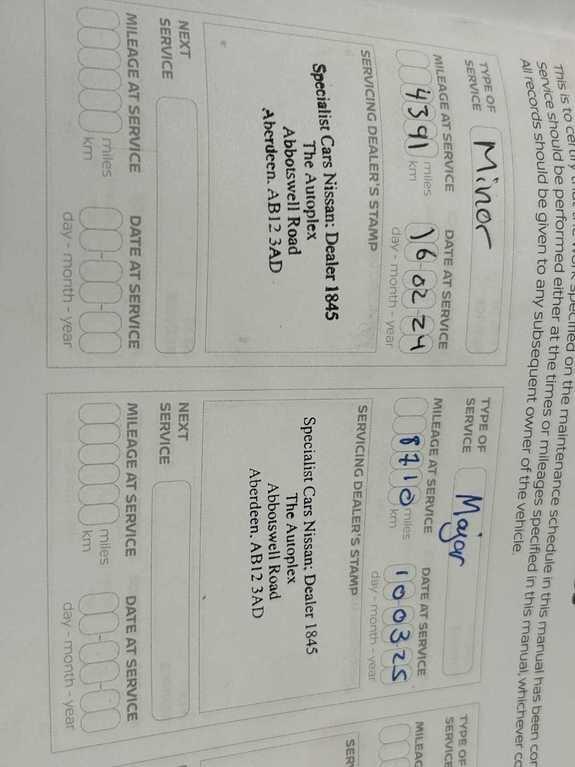 This is to certify that the work specified on the maintenance schedule in this manual has been
Service should be performed either at the times or mileages specified in this manual, whichever
All records should be given to any subsequent owner of the vehicle.
TYPE OF
SERVICE
Minor
MILEAGE AT SERVICE
4391
miles
km
DATE AT SERVICE
16-02-24
day - month - year
SERVICING DEALER'S STAMP
Specialist Cars Nissan: Dealer 1845
The Autoplex
Abbotswell Road
Aberdeen. AB12 3AD
NEXT
SERVICE
MILEAGE AT SERVICE
miles
km
DATE AT SERVICE
day - month - year
TYPE OF
SERVICE
Major
MILEAGE AT SERVICE
8710
miles
km
DATE AT SERVICE
10-03-25
day - month - year
SERVICING DEALER'S STAMP
Specialist Cars Nissan: Dealer 1845
The Autoplex
Abbotswell Road
Aberdeen. AB12 3AD
NEXT
SERVICE
MILEAGE AT SERVICE
miles
km
DATE AT SERVICE
day - month - year
TYPE OF
SERVICE